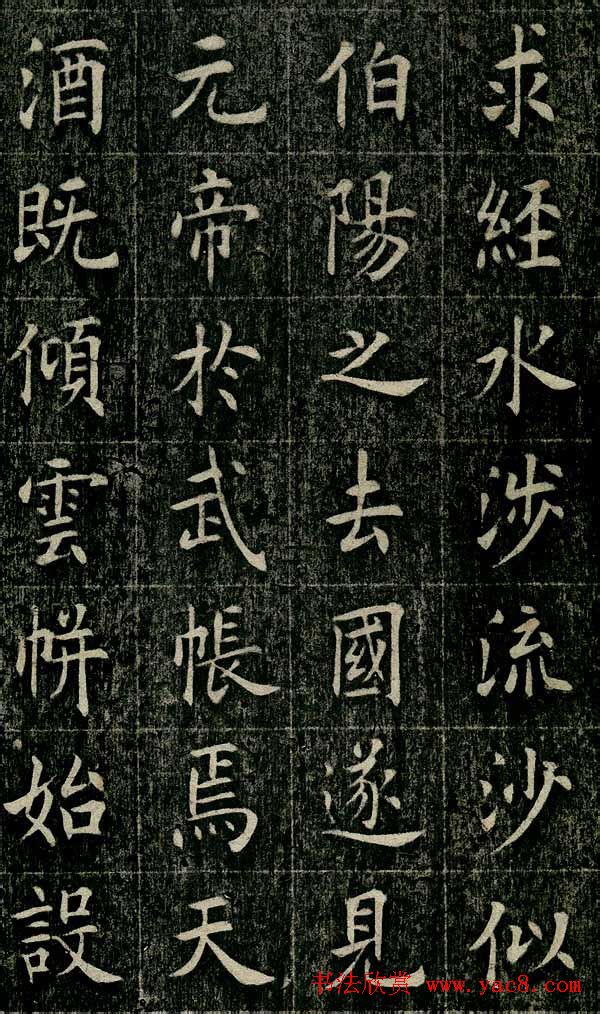 求經水涉流沙似
伯陽之去國遂見
元帝於武帳焉天
酒既傾雲帡始設
书法欣赏 www.yac8.com